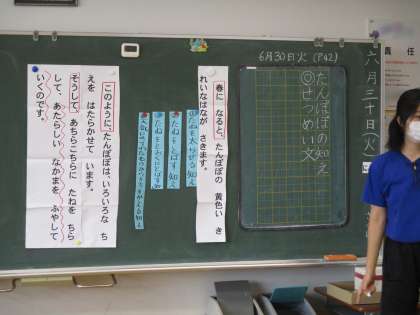 責任
六月三十日火
6月30日火 (P42)
たんぽぽの知え
◎せつめい文
春に なると、たんぽぽの 黄色い き
れいなはなが さきます。
たねを太らせる知え
たねをとばす知え
このように、たんぽぽは、いろいろな ち
えを はたらかせて います。
そうして、あちらこちらに たねを ちら
して、あたらしい なかまを ふやして
いくのです。